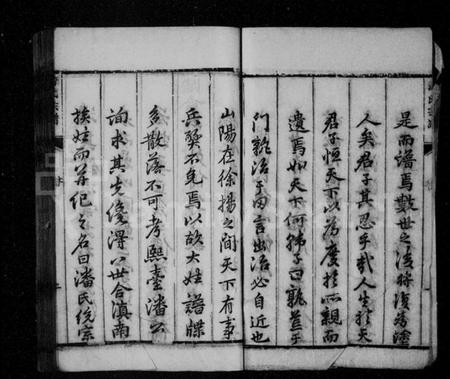 是而譜焉數世之後將復為塗
人矣君子其忍乎哉人生於天
君子恒天下以為度於所親而
遺焉如天下何孺子曰孰荳乎
門難治于田言出治必自近也
山陽在徐揚之間天下有事
兵燹不免焉以故大姓譜牒
多散落不可考熙臺潘公
詢求其先僅得八世合滇南
挨姓而并紀之名曰潘氏統宗